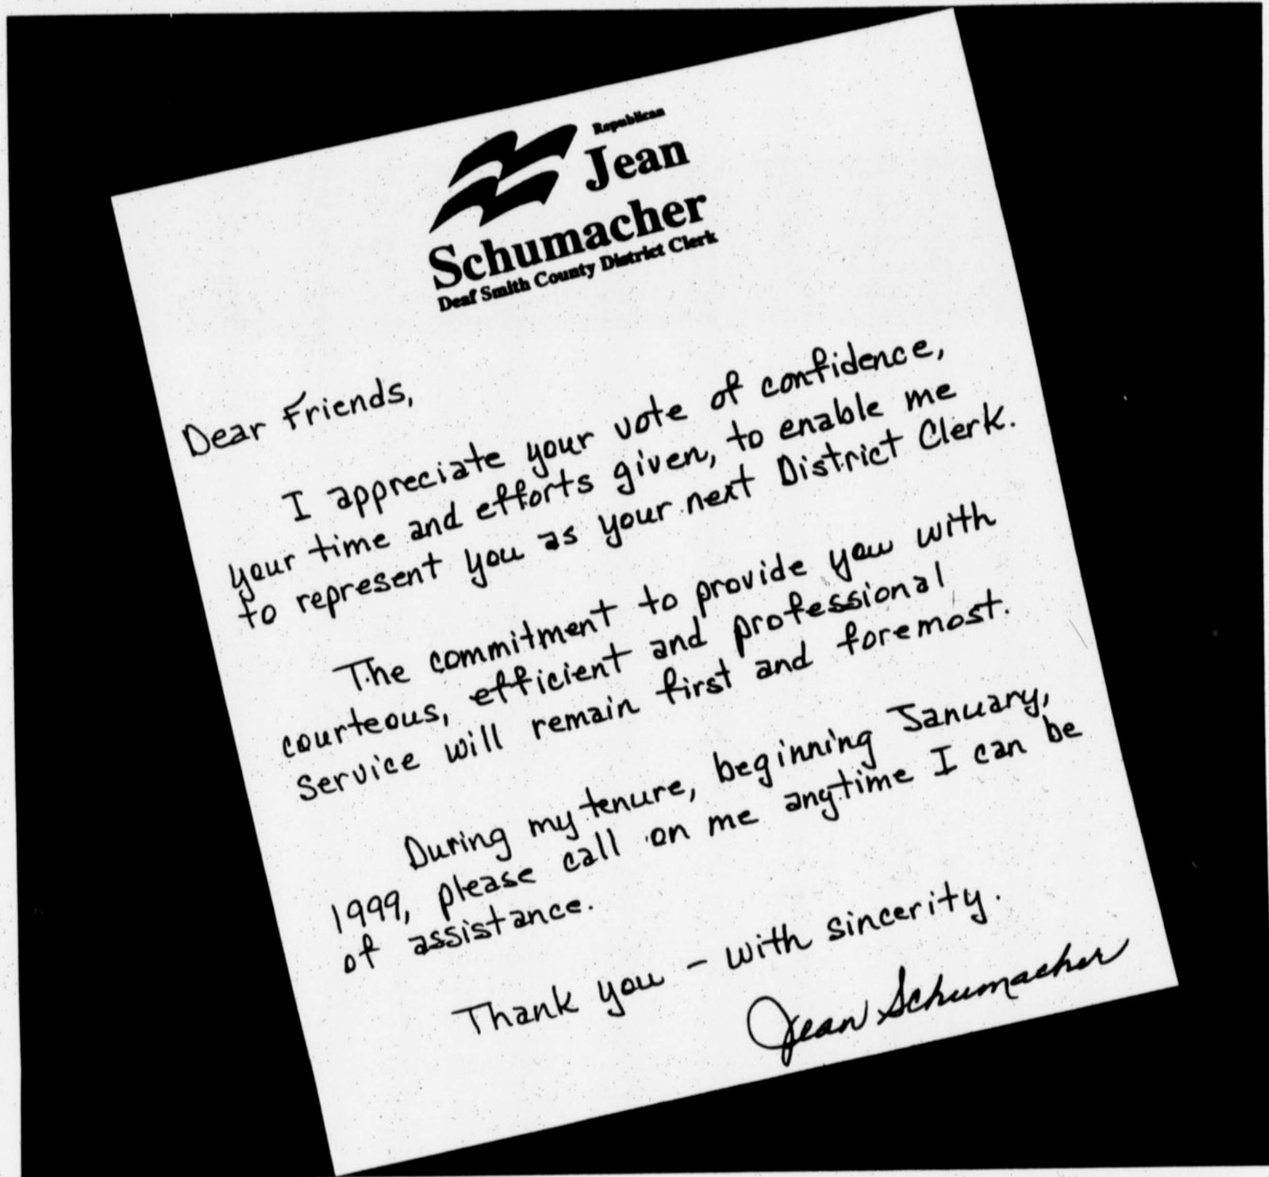 Republican
Jean
Schumacher
Deaf Smith County District Clerk
Dear Friends,
I appreciate your vote of confidence,
your time and efforts given, to enable me
to represent you as your next District Clerk.
The commitment to provide you with
courteous, efficient and professional
service will remain first and foremost.
During my tenure, beginning January,
1999, please call on me anytime I can be
of assistance.
Thank you – with sincerity.
Jean Schumacher